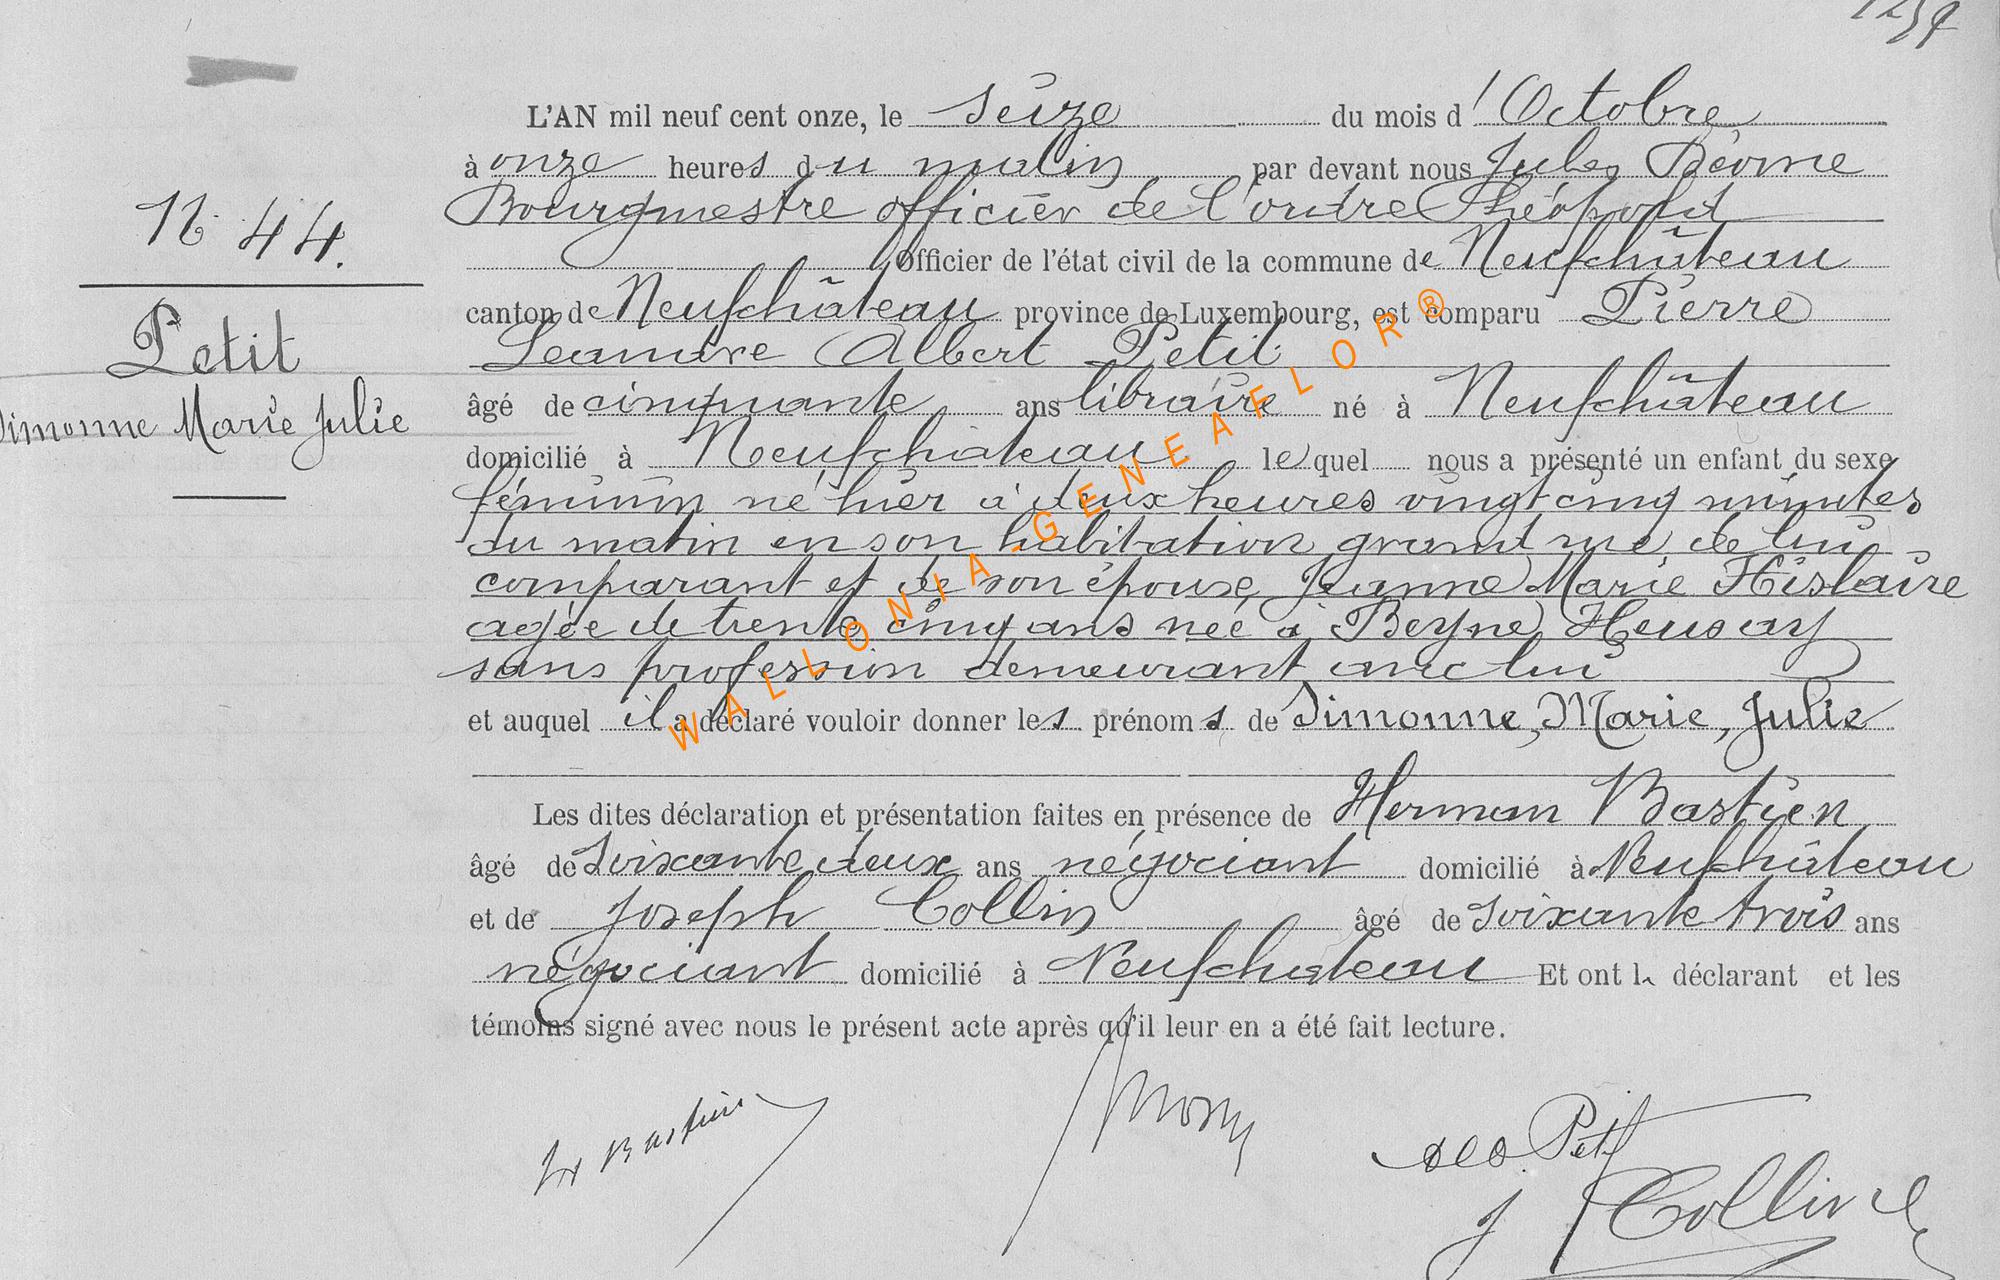 L'AN mil neuf cent onze, le seize du mois d'Octobre
à onze heures du matin par devant nous Jules
Bourgmestre officier de l'ordre Léopold
Officier de l'état civil de la commune de Neufchâteau
canton de Neufchâteau province de Luxembourg, est comparu Pierre
Leandre Albert Petit
âgé de cinquante ans libraire né à Neufchâteau
domicilié à Neufchateau lequel nous a présenté un enfant du sexe
féminin né hier à deux heures vingt cinq minutes
du matin en son habitation grand rue de lui
comparant et de son épouse Jeanne Marie Hislaire
agée de trente cinq ans née à Beyne Heusay
sans profession demeurant avec lui
et auquel il a déclaré vouloir donner les prénoms de Simonne, Marie, Julie
Les dites déclaration et présentation faites en présence de Herman Bastien
âgé de soixante deux ans négociant domicilié à Neufchâteau
et de Joseph Collin âgé de soixante trois ans
négociant domicilié à Neufchateau Et ont le déclarant et les
témoins signé avec nous le présent acte après qu'il leur en a été fait lecture.
N° 44.
Petit
Simonne Marie Julie
H Bastien
Petit
J Collin
WALLONIA-GENEAFLOR®